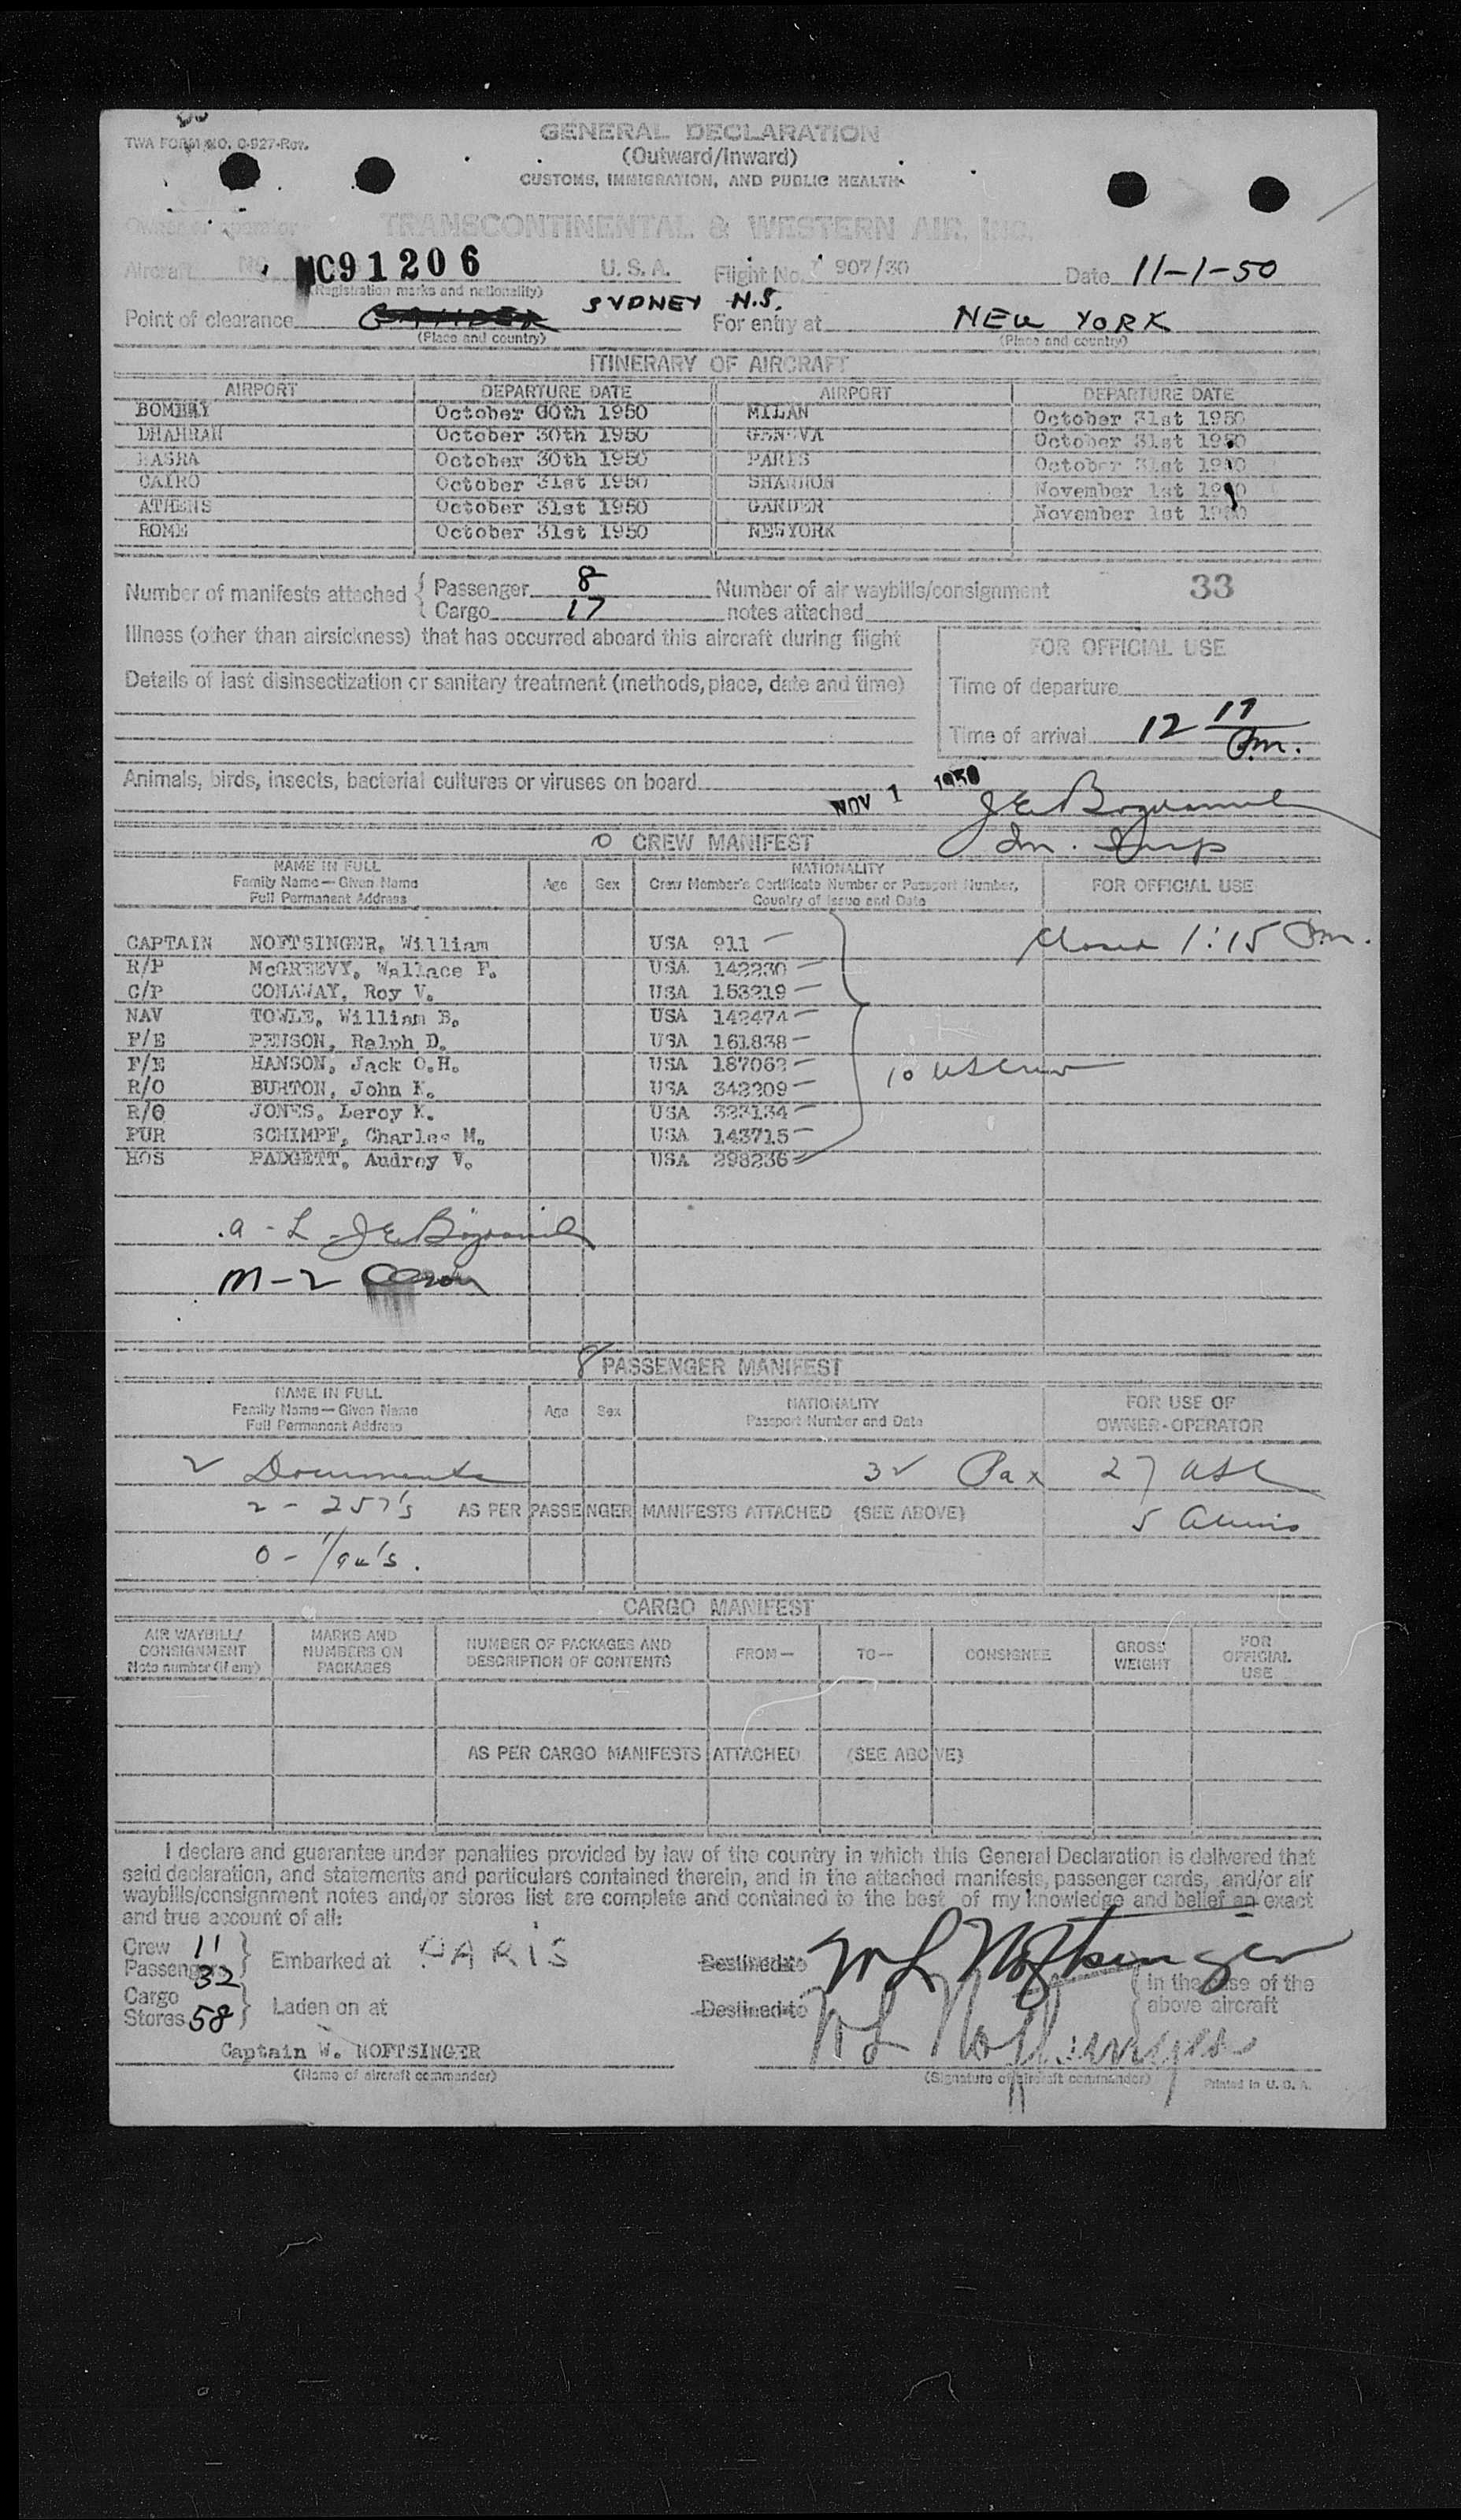 TWA FORM NO. O-927-Rev.
GENERAL DECLARATION
(Outward/Inward)
CUSTOMS, IMMIGRATION, AND PUBLIC HEALTH
Owner or operator TRANSCONTINENTAL & WESTERN AIR, INC.
Aircraft NC NC91206 U. S. A. Flight No. 907/30 Date 11-1-50
(Registration marks and nationality)
Point of clearance GANDER SYDNEY N.S. For entry at NEW YORK
(Place and country) (Place and country)
ITINERARY OF AIRCRAFT
AIRPORT DEPARTURE DATE AIRPORT DEPARTURE DATE
BOMBAY October 00th 1950 MILAN October 31st 1950
DHAHRAN October 30th 1950 GENEVA October 31st 1950
BASRA October 30th 1950 PARIS October 31st 1950
CAIRO October 31st 1950 SHANNON November 1st 1950
ATHENS October 31st 1950 GANDER November 1st 1950
ROME October 31st 1950 NEWYORK
Number of manifests attached { Passenger 8 Number of air waybills/consignment 33
Cargo 17 notes attached
Illness (other than airsickness) that has occurred aboard this aircraft during flight
FOR OFFICIAL USE
Details of last disinsectization or sanitary treatment (methods, place, date and time)
Time of departure
Time of arrival 12 17 Pm.
Animals, birds, insects, bacterial cultures or viruses on board
NOV 1 1950
Im. Insp
0 CREW MANIFEST
NAME IN FULL
Family Name—Given Name
Full Permanent Address
Age Sex
NATIONALITY
Crew Member's Certificate Number or Passport Number,
Country of Issue and Date
FOR OFFICIAL USE
Closed 1:15 Pm.
CAPTAIN NOFTSINGER, William USA 911
R/P McGREEVY, Wallace F. USA 142230
C/P CONAWAY, Roy V. USA 153219
NAV TOWLE, William B. USA 142474
F/E PENSON, Ralph D. USA 161838
F/E HANSON, Jack O.H. USA 187062
10 US Crew
R/O BURTON, John K. USA 342209
R/O JONES, Leroy K. USA 323134
PUR SCHIMPF, Charles M. USA 143715
HOS PADGETT, Audrey V. USA 298236
a - L
M - 2
8 PASSENGER MANIFEST
NAME IN FULL
Family Name—Given Name
Full Permanent Address
Age Sex
NATIONALITY
Passport Number and Date
FOR USE OF
OWNER-OPERATOR
2 Documents 32 Pax 27 USC
2 - 257's AS PER PASSENGER MANIFESTS ATTACHED (SEE ABOVE) 5 Aliens
0 -
CARGO MANIFEST
AIR WAYBILL/
CONSIGNMENT
Note number (if any)
MARKS AND
NUMBERS ON
PACKAGES
NUMBER OF PACKAGES AND
DESCRIPTION OF CONTENTS
FROM— TO— CONSIGNEE
GROSS
WEIGHT
FOR
OFFICIAL
USE
AS PER CARGO MANIFESTS ATTACHED (SEE ABOVE)
I declare and guarantee under penalties provided by law of the country in which this General Declaration is delivered that
said declaration, and statements and particulars contained therein, and in the attached manifests, passenger cards, and/or air
waybills/consignment notes and/or stores list are complete and contained to the best of my knowledge and belief an exact
and true account of all:
Crew 11
Passengers 32 } Embarked at PARIS Destined to W L Noftsinger
in the case of the
Cargo
Stores 58 } Laden on at Destined to W L Noftsinger above aircraft
Captain W. NOFTSINGER
(Name of aircraft commander) (Signature of aircraft commander) Printed in U. S. A.